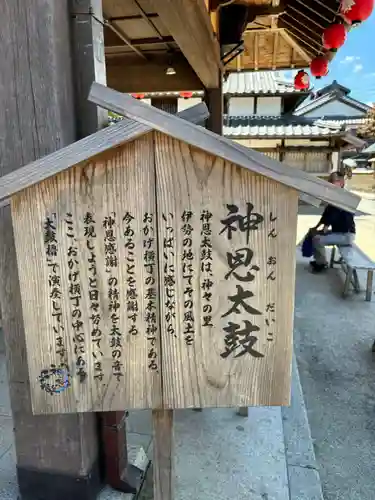 神恩太鼓
しんおんだいこ
神恩太鼓は、神々の里
伊勢の地にてその風土を
いっぱいに感じながら、
おかげ横丁の基本精神である、
今あることを感謝する
「神恩感謝」の精神を太鼓の音で
表現しようと日々努めています。
ここ、おかげ横丁の中心にある
"太鼓櫓"で演奏しています。